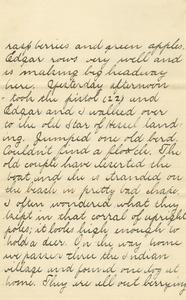 raspberries and green apples.
Edgar rows very well and
is making big headway
here. Yesterday afternoon
took the pistol (22) and
Edgar and I walked over
to the old Star of Hazel land-
ing. Jumped one old bird.
Couldn't find a flock. The
old couple have deserted the
boat and she is stranded on
the beach in pretty bad shape.
I often wondered what they
kept in that corral of upright
poles; it looks high enough to
hold a deer. On the way home
we passed thru the Indian
village and found one boy at
home. They are all out berrying